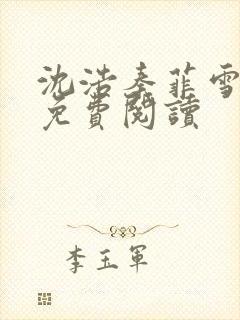 沈浩秦菲雪
免費閱讀
李玉軍